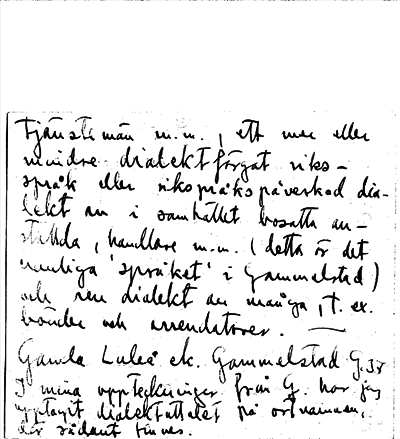 tjänstemän m.m., ett mer eller
mindre dialektfärgat riks-
språk eller rikspråkspåverkad dia-
lekt av i samhället bosatta an-
ställda, handlare m.m. (detta är det
vanliga 'språket' i Gammelstad)
och ren dialekt av många, t. ex.
bönder och arrendatorer. —
Gamla Luleå ek. Gammelstad G.
I mina uppteckningar från G. har jag
upptagit dialektuttalet på ortnamnen,
där sådant finnes.